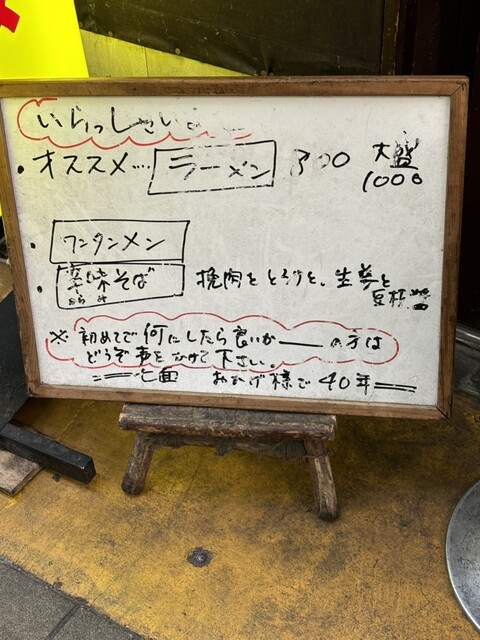 いらっしゃいませ
・オススメ… ラーメン 大盛 1000
・ワンタンメン
・辛味そば 挽肉と 生姜と
からみ
※初めてで何にしたら良いか――の方は
どうぞ声をかけて下さい。
七面 おかげ様で40年